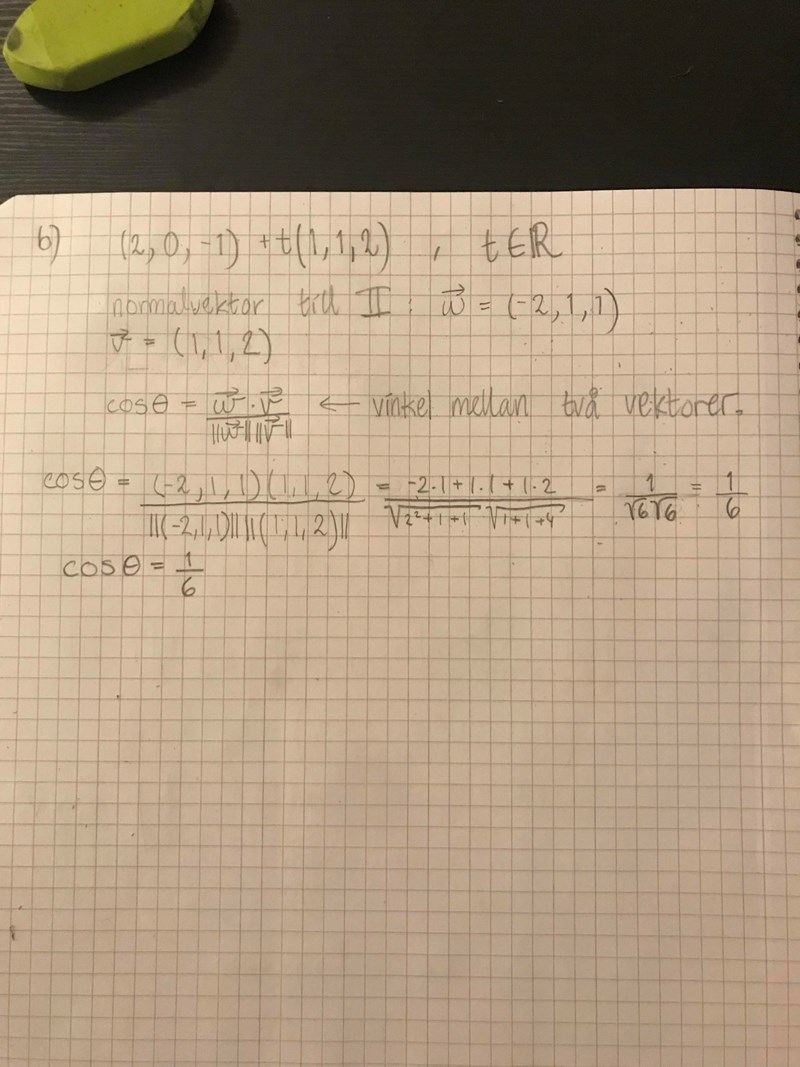 b) (2, 0, -1) + t(1, 1, 2) , t ∈ ℝ
normalvektor till II : w⃗ = (-2, 1, 1)
v⃗ = (1, 1, 2)
cosθ = w⃗ · v⃗ / ||w⃗|| ||v⃗|| ← vinkel mellan två vektorer.
cosθ = (-2, 1, 1)(1, 1, 2) / ||(-2,1,1)|| ||(1, 1, 2)|| = -2·1 + 1·1 + 1·2 / √(2²+1+1) √(1+1+4) = 1 / √6√6 = 1/6
cosθ = 1/6